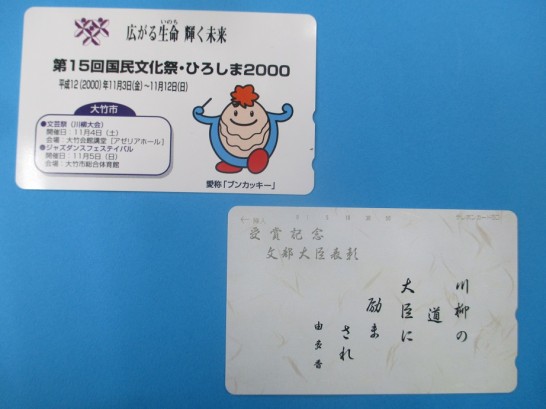 広がる生命 輝く未来
いのち
第15回国民文化祭・ひろしま2000
平成12(2000)年11月3日(金)~11月12日(日)
大竹市
●文芸祭(川柳大会)
開催日:11月4日(土)
会場:大竹会館講堂[アゼリアホール]
●ジャズダンスフェスティバル
開催日:11月5日(日)
会場:大竹市総合体育館
愛称「ブンカッキー」
受賞記念
文部大臣表彰
川柳の
道
大臣に
励ま
され